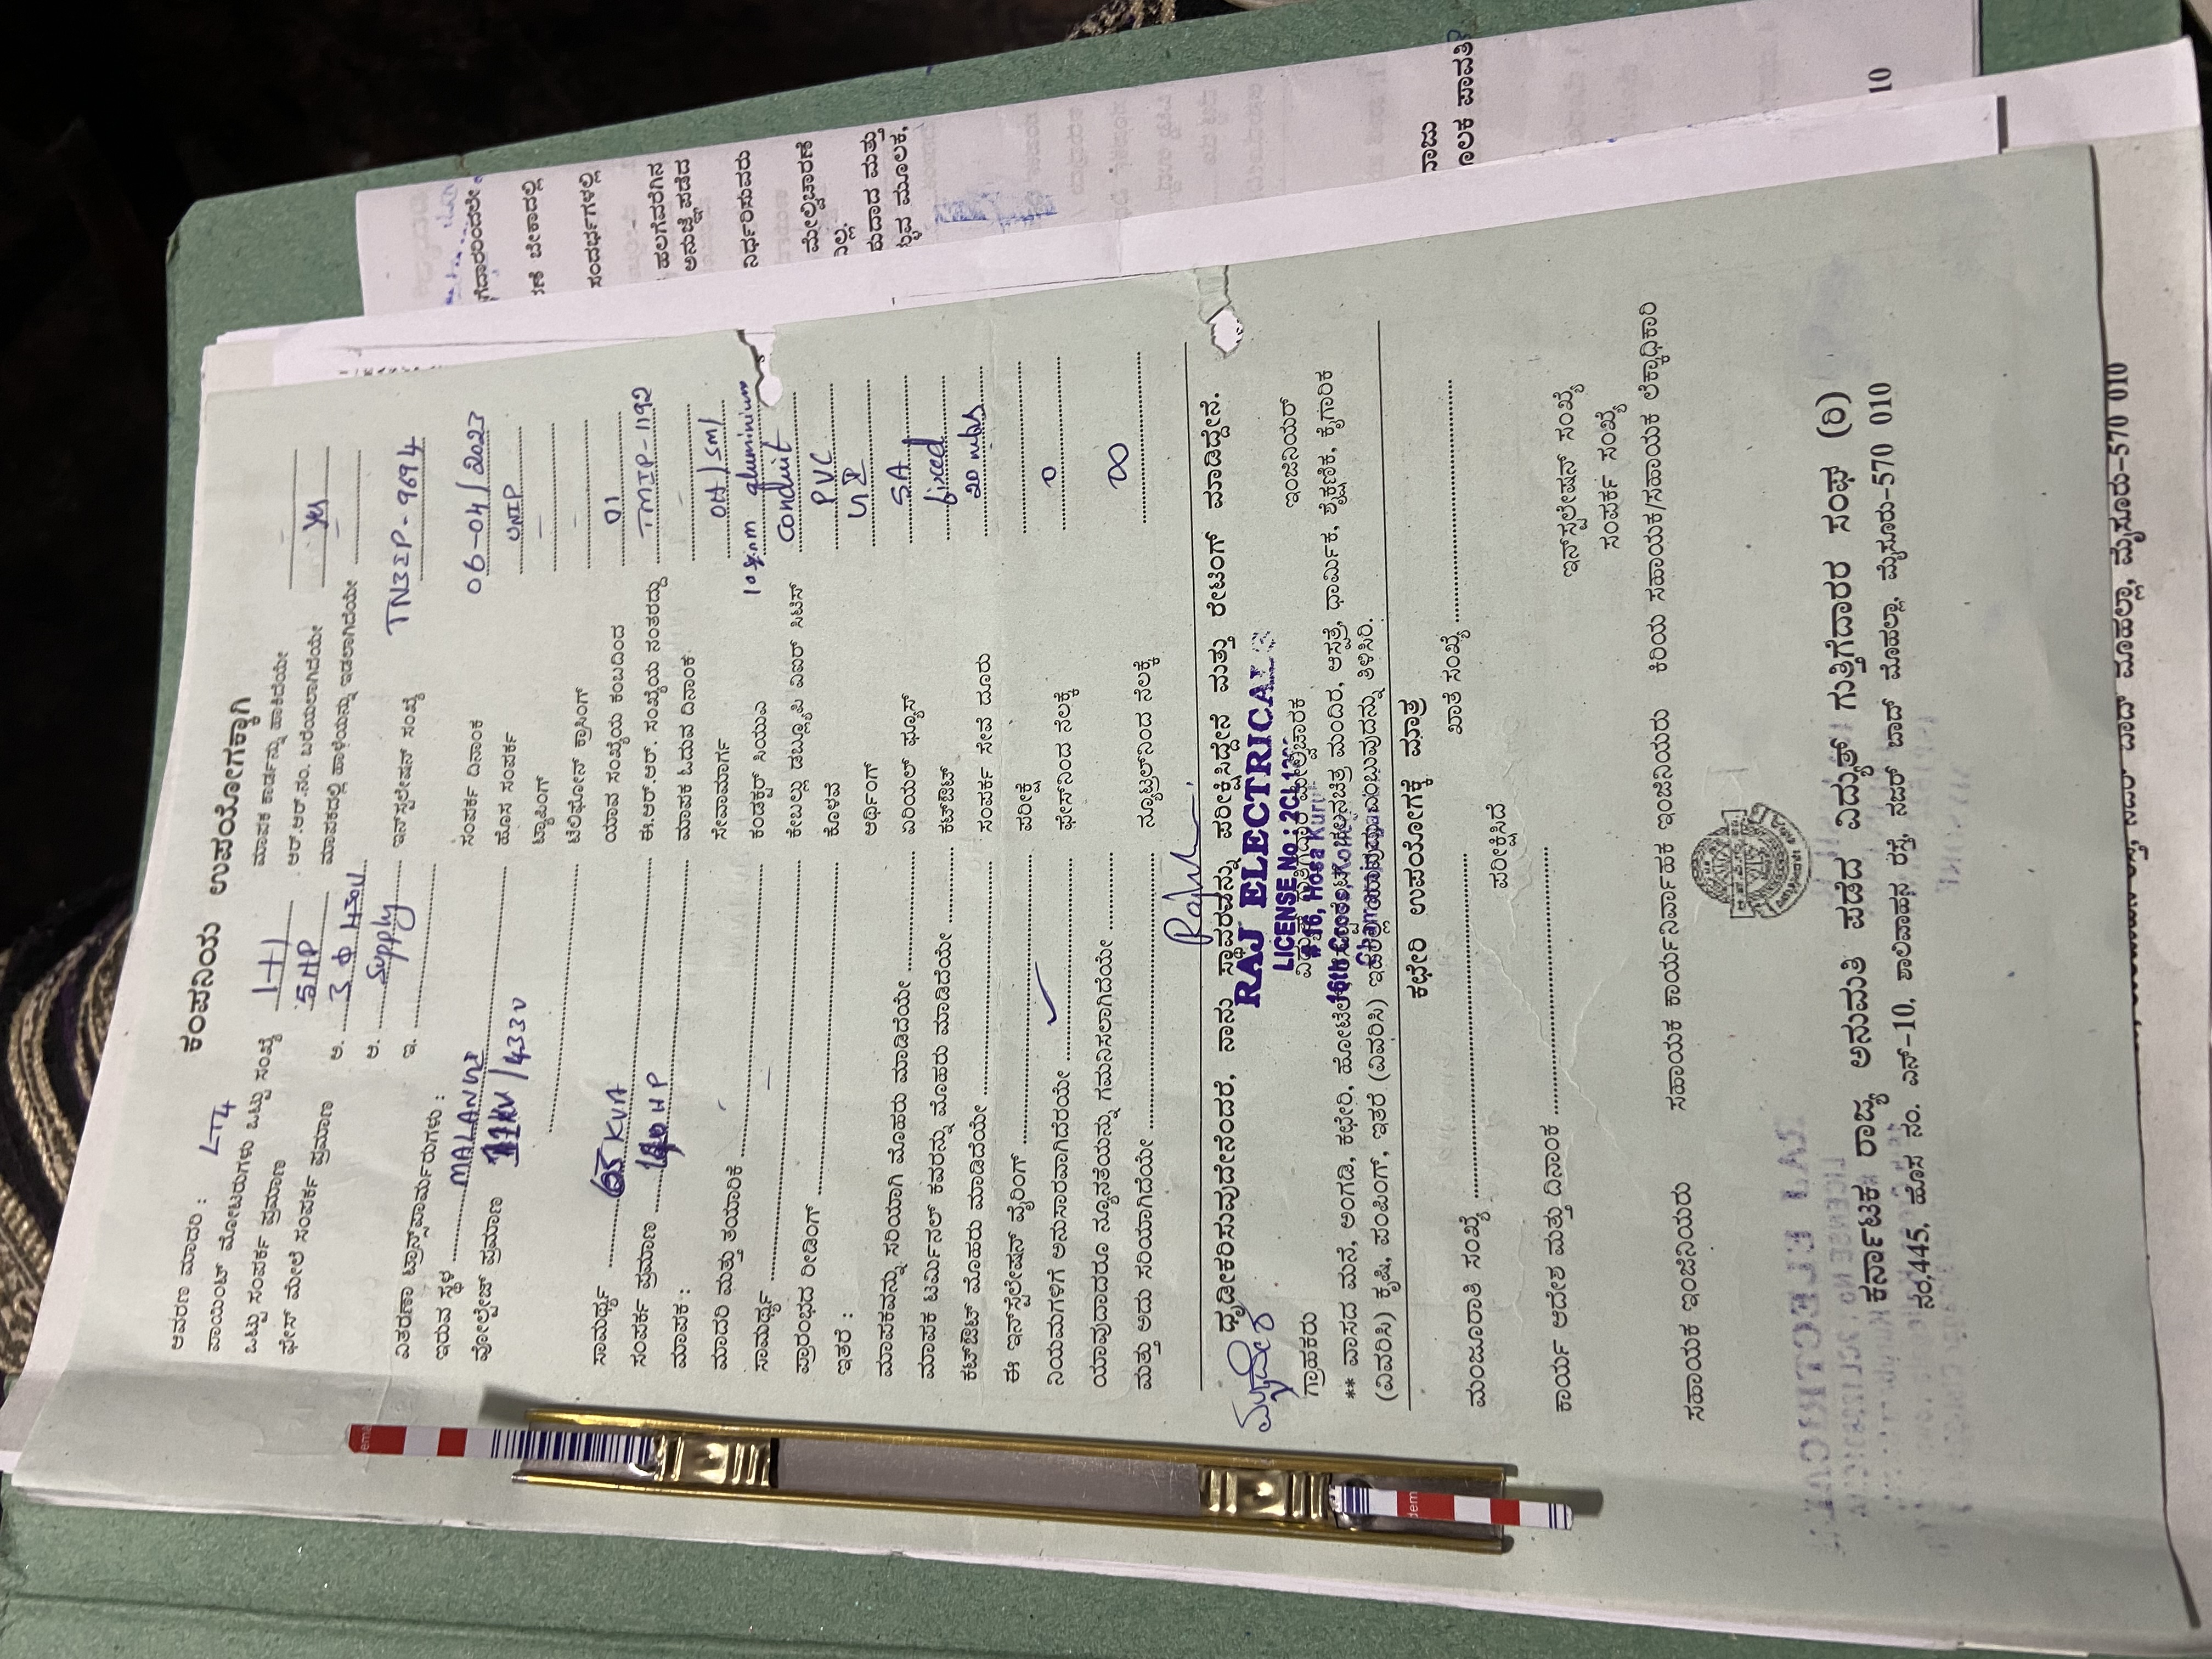 ಕಂಪನಿಯ ಉಪಯೋಗಕ್ಕಾಗಿ
ಆವರಣ ಮಾದರಿ : LT4
ಪಾಯಿಂಟ್ ಮೋಟರುಗಳು ಒಟ್ಟು ಸಂಖ್ಯೆ 1+1
ಒಟ್ಟು ಸಂಪರ್ಕ ಪ್ರಮಾಣ 5HP
ಫೇಸ್ ಮೇಲೆ ಸಂಪರ್ಕ ಪ್ರಮಾಣ ಅ. 3 Φ 440V
ಆ. supply
ಇ.
ವಿತರಣಾ ಟ್ರಾನ್ಸ್‌ಫಾರ್ಮರುಗಳು :
ಇರುವ ಸ್ಥಳ
ವೋಲ್ಟೇಜ್ ಪ್ರಮಾಣ 11KV/433V
ಸಾಮರ್ಥ್ಯ KVA
ಸಂಪರ್ಕ ಪ್ರಮಾಣ HP
ಮಾಪಕ :
ಮಾದರಿ ಮತ್ತು ತಯಾರಿಕೆ
ಸಾಮರ್ಥ್ಯ
ಪ್ರಾರಂಭದ ರೀಡಿಂಗ್
ಇತರೆ :
ಮಾಪಕವನ್ನು ಸರಿಯಾಗಿ ಮೊಹರು ಮಾಡಿದೆಯೇ
ಮಾಪಕ ಟರ್ಮಿನಲ್ ಕವರನ್ನು ಮೊಹರು ಮಾಡಿದೆಯೇ
ಕಟ್‌ಔಟ್ ಮೊಹರು ಮಾಡಿದೆಯೇ
ಈ ಇನ್‌ಸ್ಟಲೇಷನ್ ವೈರಿಂಗ್
ನಿಯಮಗಳಿಗೆ ಅನುಸಾರವಾಗಿದೆಯೇ ✓
ಯಾವುದಾದರೂ ನ್ಯೂನತೆಯನ್ನು ಗಮನಿಸಲಾಗಿದೆಯೇ
ಮತ್ತು ಅದು ಸರಿಯಾಗಿದೆಯೇ
ಮಾಪಕ ಕಾರ್ಡನ್ನು ಹಾಕಿದೆಯೇ
ಆರ್.ಆರ್.ನಂ. ಬರೆಯಲಾಗಿದೆಯೇ yes
ಮಾಪಕದಲ್ಲಿ ಹಾಳೆಯನ್ನು ಇಡಲಾಗಿದೆಯೇ
ಇನ್‌ಸ್ಟಲೇಷನ್ ಸಂಖ್ಯೆ TN3IP-9694
ಸಂಪರ್ಕ ದಿನಾಂಕ 06-04/2023
ಹೊಸ ಸಂಪರ್ಕ UNIP
ಟ್ಯಾಪಿಂಗ್
ಟೆಲಿಫೋನ್ ಕ್ರಾಸಿಂಗ್
ಯಾವ ಸಂಖ್ಯೆಯ ಕಂಬದಿಂದ 01
ಈ.ಆರ್.ಆರ್. ಸಂಖ್ಯೆಯ ನಂತರದ್ದು TMIP-1192
ಮಾಪಕ ಓದುವ ದಿನಾಂಕ
ಸೇವಾಮಾರ್ಗ OH/SM/
ಕಂಡಕ್ಟರ್ ಸಿಯುಎ aluminium
ಕೇಬಲ್ಲು ಡಬ್ಲ್ಯೂಪಿ ಎಐಆರ್ ಸಿಟಿಸ್ conduit
ಕೊಳವೆ PVC
ಅರ್ಥಿಂಗ್
ಏರಿಯಲ್ ಫ್ಯೂಸ್ 5A
ಕಟ್‌ಔಟ್ fixed
ಸಂಪರ್ಕ ಸೇವೆ ದೂರ 20 mtrs
ಪರೀಕ್ಷೆ
ಫೇಸ್‌ನಿಂದ ನೆಲಕ್ಕೆ 0
ನ್ಯೂಟ್ರಲ್‌ನಿಂದ ನೆಲಕ್ಕೆ ∞
ಧೃಢೀಕರಿಸುವುದೇನೆಂದರೆ, ನಾನು ಸ್ಥಾವರವನ್ನು ಪರೀಕ್ಷಿಸಿದ್ದೇನೆ ಮತ್ತು ರೇಟಿಂಗ್ ಮಾಡಿದ್ದೇನೆ.
RAJ ELECTRICALS
LICENSE No : 2CL
# 16, Hosa Kun
16th Cross,
ಗ್ರಾಹಕರು ವಿದ್ಯುತ್ ಗುತ್ತಿಗೆದಾರ ಮೇಲ್ವಿಚಾರಕ ಇಂಜಿನಿಯರ್
** ವಾಸದ ಮನೆ, ಅಂಗಡಿ, ಕಛೇರಿ, ಹೋಟೆಲ್ ಚಲನಚಿತ್ರ ಮಂದಿರ, ಆಸ್ಪತ್ರೆ, ಧಾರ್ಮಿಕ, ಶೈಕ್ಷಣಿಕ, ಕೈಗಾರಿಕ
(ವಿವರಿಸಿ) ಕೃಷಿ, ಪಂಪಿಂಗ್, ಇತರೆ (ವಿವರಿಸಿ) ಎಂಬುವುದನ್ನು ತಿಳಿಸಿರಿ.
ಕಛೇರಿ ಉಪಯೋಗಕ್ಕೆ ಮಾತ್ರ
ಮಂಜೂರಾತಿ ಸಂಖ್ಯೆ ಖಾತೆ ಸಂಖ್ಯೆ
ಪರೀಕ್ಷಿಸಿದ
ಕಾರ್ಯ ಆದೇಶ ಮತ್ತು ದಿನಾಂಕ
ಇನ್‌ಸ್ಟಲೇಷನ್ ಸಂಖ್ಯೆ
ಸಂಪರ್ಕ ಸಂಖ್ಯೆ
ಸಹಾಯಕ ಇಂಜಿನಿಯರು ಸಹಾಯಕ ಕಾರ್ಯನಿರ್ವಾಹಕ ಇಂಜಿನಿಯರು ಕಿರಿಯ ಸಹಾಯಕ/ಸಹಾಯಕ ಲೆಕ್ಕಾಧಿಕಾರಿ
ಕರ್ನಾಟಕ ರಾಜ್ಯ ಅನುಮತಿ ಪಡೆದ ವಿದ್ಯುತ್ ಗುತ್ತಿಗೆದಾರರ ಸಂಘ (ರಿ)
ನಂ.445, ಹೊಸ ನಂ. ಎನ್-10, ಶಾಲಿವಾಹನ ರಸ್ತೆ, ನಜರ್ ಬಾದ್ ಮೊಹಲ್ಲಾ, ಮೈಸೂರು-570 010
ಮೈಸೂರು-570 010
ಬೇಕಾದಲ್ಲಿ
ಸಂದರ್ಭಗಳಲ್ಲಿ
ಹಲಗೆವರೆಗಿನ
ಅನುಜ್ಞೆ ಪಡೆದ
ನಿರ್ಧರಿಸುವರು
ಮೇಲ್ವಿಚಾರಣೆ
ಮತ್ತು
ಮೂಲಕ,
ಪಾವತಿ
10